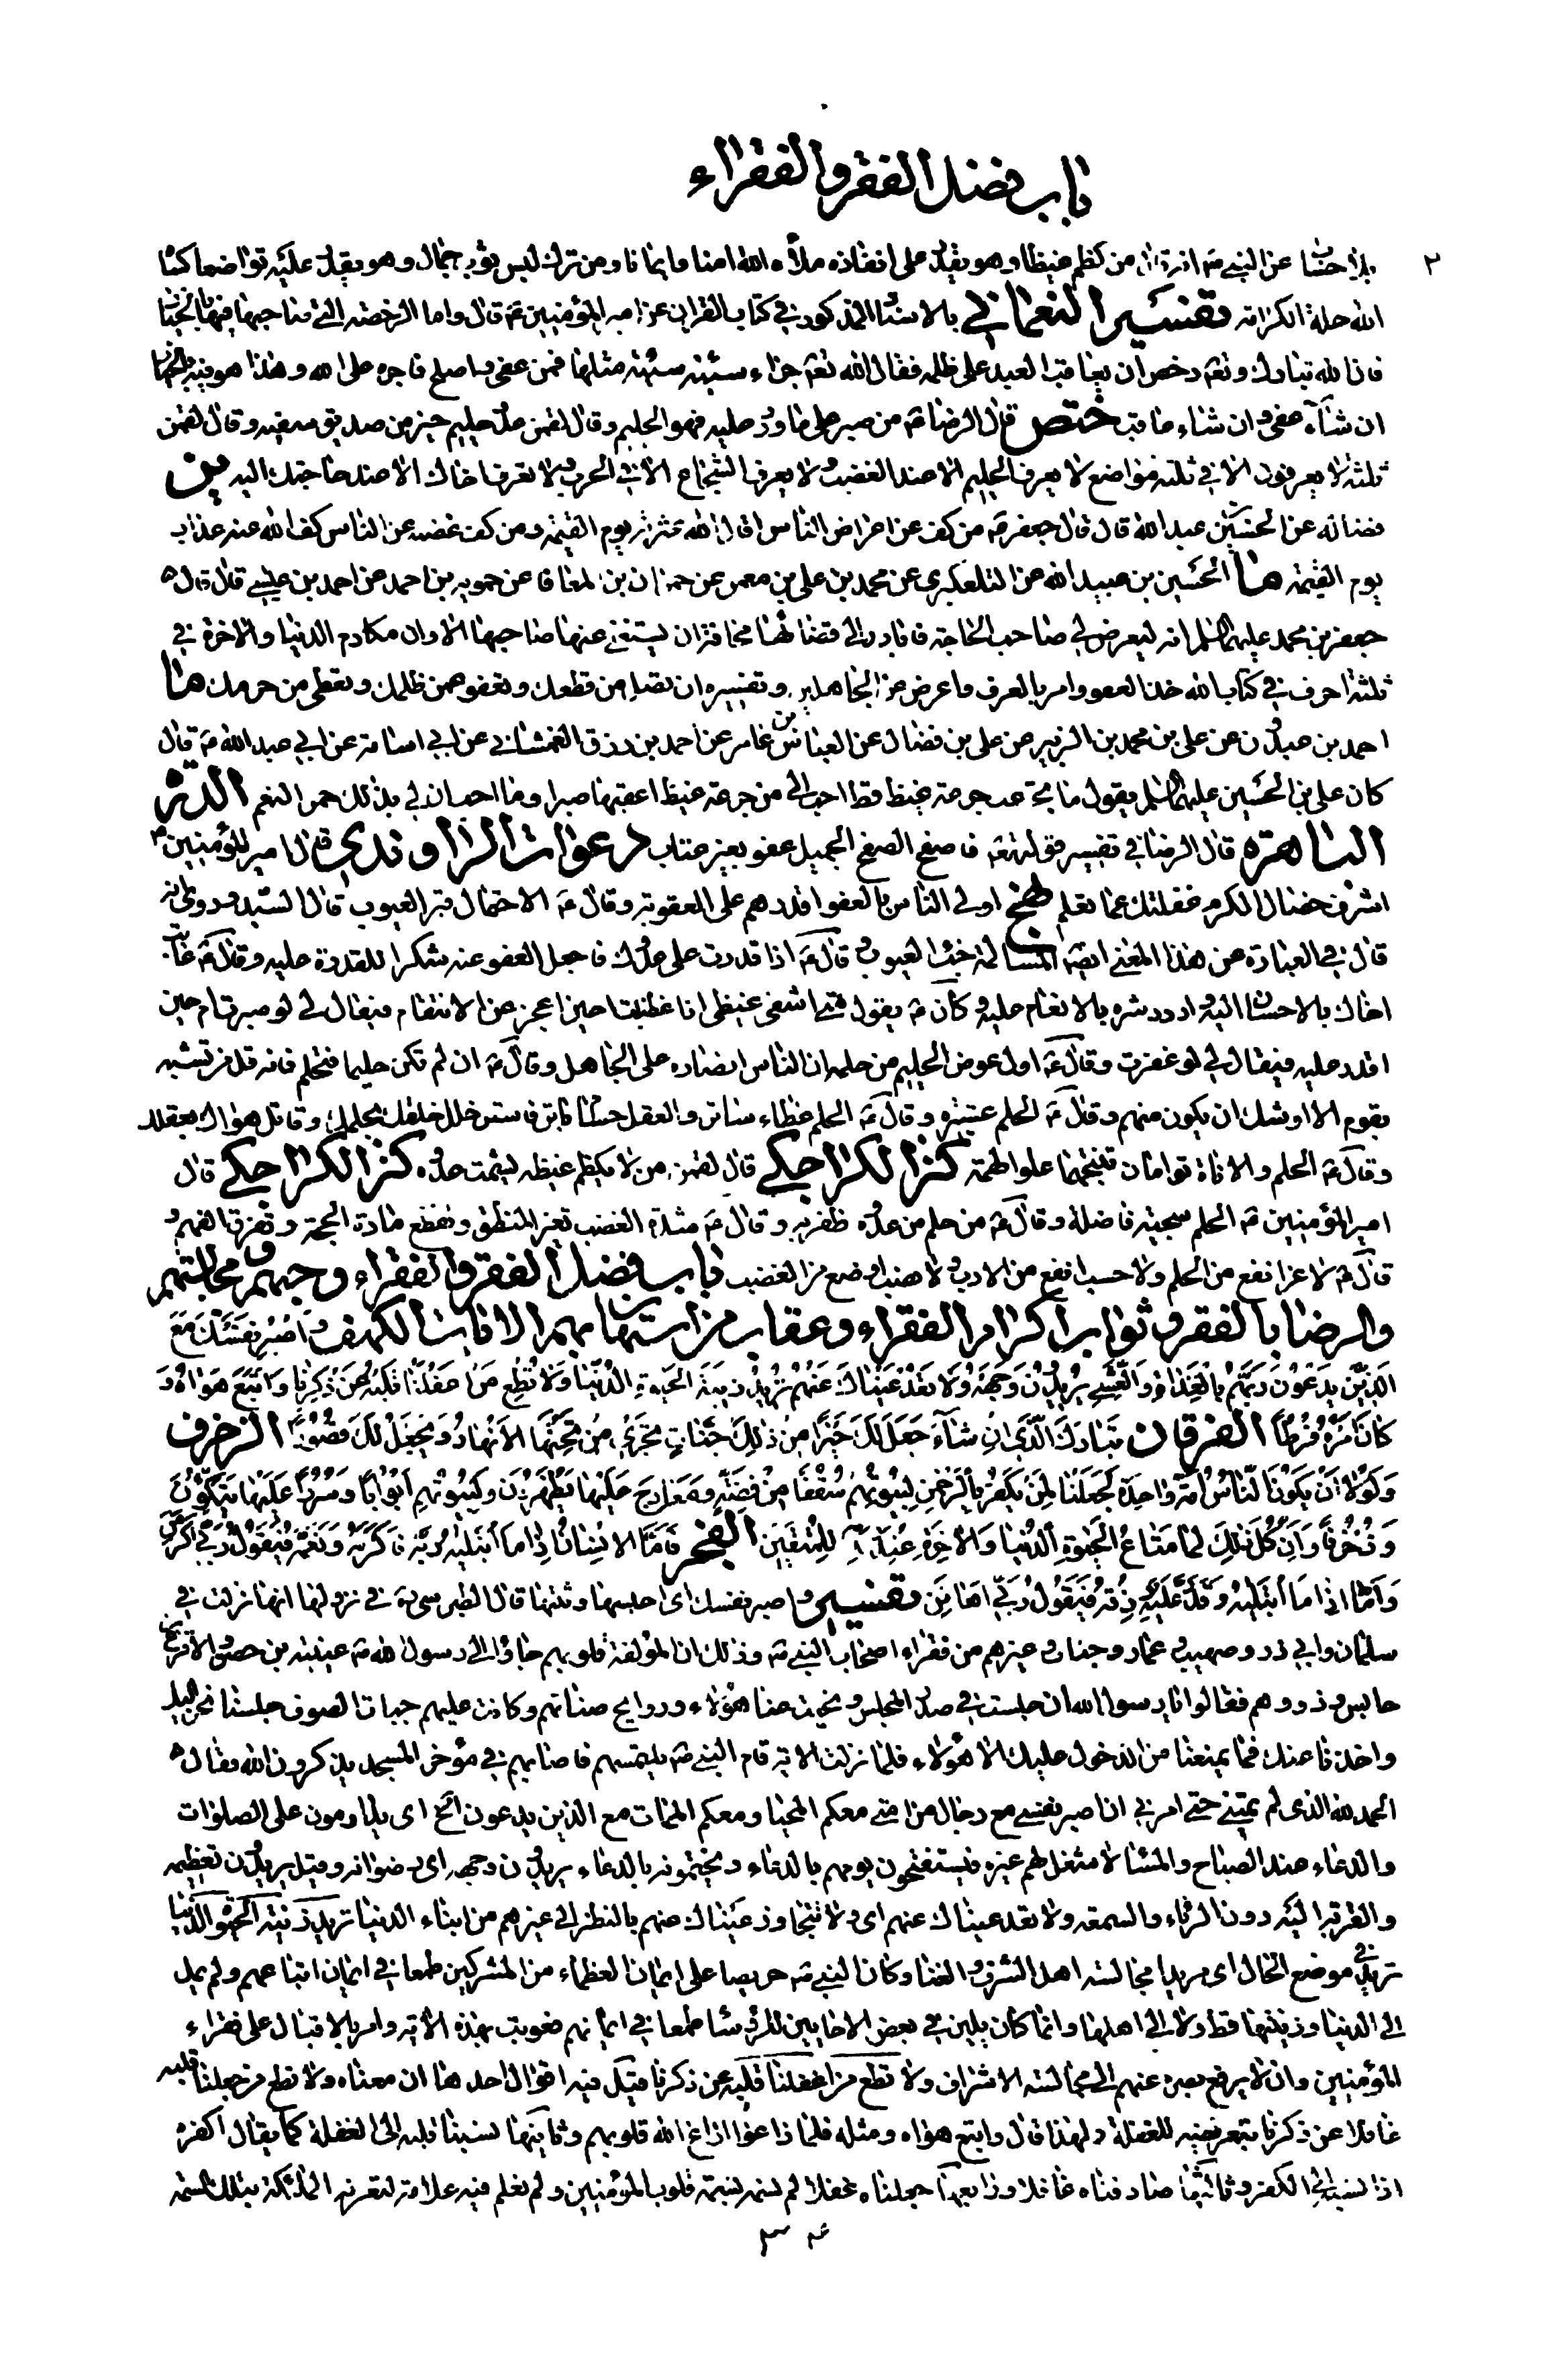 باب فضل الفقر والفقراء
٢
عن النبي ص من كظم غيظا وهو يقدر على انفاذه ملأه الله امنا وايمانا ومن ترك لبس ثوب جمال وهو يقدر عليه تواضعا كساه
الله حلة الكرامة تفسير النعماني بالاسناد المذكور في كتاب القران عن امير المؤمنين ع قال واما الرخصة التي صاحبها فيها بالخيار
فان الله تبارك وتعالى رخص ان يعاقب العبد على ظلمه فقال الله تعالى جزاء سيئة سيئة مثلها فمن عفى واصلح فاجره على الله وهذا هو فيه بالخيار
ان شاء عفى وان شاء عاقب ختص قال الرضا ع من صبر على ما ورد عليه فهو الحليم وقال لقمن عدو حليم خير من صديق سفيه وقال لقمن
ثلثة لا يعرفون الا في ثلثة مواضع لا يعرف الحليم الا عند الغضب ولا يعرف الشجاع الا في الحرب ولا تعرف اخاك الا عند حاجتك اليه ين
فضالة عن الحسين بن عبد الله قال قال جعفر ع من كف عن اعراض الناس اقال الله عثرته يوم القيمة ومن كف غضبه عن الناس كف الله عنه عذاب
يوم القيمة ما الحسين بن عبيد الله عن التلعكبري عن محمد بن علي بن معمر عن حمدان بن المعافا عن حمويه بن احمد عن احمد بن عيسى قال قال
جعفر بن محمد عليهما السلم انه ليعرض لي صاحب الحاجة فابادر الى قضائها مخافة ان يستغنى عنها صاحبها الا وان مكارم الدنيا والاخرة في
ثلثة احرف في كتاب الله خذ العفو وامر بالعرف واعرض عن الجاهلين وتفسيره ان تصل من قطعك وتعفو عمن ظلمك وتعطي من حرمك ما
احمد بن عبدون عن علي بن محمد بن الزبير عن علي بن فضال عن العباس بن عامر عن احمد بن رزق الغمشاني عن ابي اسامة عن ابي عبد الله ع قال
كان علي بن الحسين عليهما السلم يقول ما تجرعت جرعة غيظ قط احب الي من جرعة غيظ اعقبها صبرا وما احب ان لي بذلك حمر النعم الدرة
الباهرة قال الرضا في تفسير قوله تعالى فاصفح الصفح الجميل عفو بغير عتاب دعوات الراوندي قال امير المؤمنين ع
اشرف خصال الكرم غفلتك عما تعلم نهج اولى الناس بالعفو اقدرهم على العقوبة وقال ع الاحتمال قبر العيوب قال السيد وروي انه
قال في العبارة عن هذا المعنى ايضا المسالمة خبء العيوب وقال ع اذا قدرت على عدوك فاجعل العفو عنه شكرا للقدرة عليه وقال ع عاتب
اخاك بالاحسان اليه واردد شره بالانعام عليه وكان ع يقول متى اشفي غيظي اذا غضبت احين اعجز عن الانتقام فيقال لي لو صبرت ام حين
اقدر عليه فيقال لي لو غفرت وقال ع اول عوض الحليم من حلمه ان الناس انصاره على الجاهل وقال ع ان لم تكن حليما فتحلم فانه قل من تشبه
بقوم الا اوشك ان يكون منهم وقال ع الحلم عشيرة وقال ع الحلم غطاء ساتر والعقل حسام باتر فاستر خلل خلقك بحلمك وقاتل هواك بعقلك
وقال ع الحلم والاناة توامان تنتجهما علو الهمة كنز الكراجكي قال لقمن من لا يكظم غيظه يشمت عدوه كنز الكراجكي قال
امير المؤمنين ع الحلم سجية فاضلة وقال ع من حلم من عدوه ظفر به وقال ع شدة الغضب تغير المنطق وتقطع مادة الحجة وتفرق الفهم و
قال ع لا عز انفع من الحلم ولا حسب انفع من الادب ولا نصب اوضع من الغضب باب فضل الفقر والفقراء وحبهم ومجالستهم
والرضا بالفقر وثواب اكرام الفقراء وعقاب من استهان بهم الايات الكهف وَاصْبِرْ نَفْسَكَ مَعَ
الَّذِينَ يَدْعُونَ رَبَّهُمْ بِالْغَدَاةِ وَالْعَشِيِّ يُرِيدُونَ وَجْهَهُ وَلَا تَعْدُ عَيْنَاكَ عَنْهُمْ تُرِيدُ زِينَةَ الْحَيٰوةِ الدُّنْيَا وَلَا تُطِعْ مَنْ اَغْفَلْنَا قَلْبَهُ عَنْ ذِكْرِنَا وَاتَّبَعَ هَوَاهُ وَ
كَانَ اَمْرُهُ فُرُطًا الفرقان تَبَارَكَ الَّذِي اِنْ شَاءَ جَعَلَ لَكَ خَيْرًا مِنْ ذٰلِكَ جَنَّاتٍ تَجْرِي مِنْ تَحْتِهَا الْاَنْهَارُ وَيَجْعَلْ لَكَ قُصُورًا الزخرف
وَلَوْلَا اَنْ يَكُونَ النَّاسُ اُمَّةً وَاحِدَةً لَجَعَلْنَا لِمَنْ يَكْفُرُ بِالرَّحْمٰنِ لِبُيُوتِهِمْ سُقُفًا مِنْ فِضَّةٍ وَمَعَارِجَ عَلَيْهَا يَظْهَرُونَ وَلِبُيُوتِهِمْ اَبْوَابًا وَسُرُرًا عَلَيْهَا يَتَّكِئُونَ
وَزُخْرُفًا وَاِنْ كُلُّ ذٰلِكَ لَمَّا مَتَاعُ الْحَيٰوةِ الدُّنْيَا وَالْاٰخِرَةُ عِنْدَ رَبِّكَ لِلْمُتَّقِينَ الفجر فَاَمَّا الْاِنْسَانُ اِذَا مَا ابْتَلٰيهُ رَبُّهُ فَاَكْرَمَهُ وَنَعَّمَهُ فَيَقُولُ رَبِّي اَكْرَمَنِ
وَاَمَّا اِذَا مَا ابْتَلٰيهُ فَقَدَرَ عَلَيْهِ رِزْقَهُ فَيَقُولُ رَبِّي اَهَانَنِ تفسير واصبر نفسك اى احبسها وثبتها قال الطبرسي ره في نزولها انها نزلت في
سلمان وابي ذر وصهيب وعمار وخباب وغيرهم من فقراء اصحاب النبي ص وذلك ان المؤلفة قلوبهم جاؤا الى رسول الله ص عيينة بن حصن والاقرع بن
حابس وذووهم فقالوا يا رسول الله ان جلست في صدر المجلس ونحيت عنا هؤلاء وروايح صنانهم وكانت عليهم جبات الصوف جلسنا نحن اليك
واخذنا عنك فما يمنعنا من الدخول عليك الا هؤلاء فلما نزلت الاية قام النبي ص يلتمسهم فاصابهم في مؤخر المسجد يذكرون الله فقال
الحمد لله الذي لم يمتني حتى امرني ان اصبر نفسي مع رجال من امتي معكم المحيا ومعكم الممات مع الذين يدعون الخ اى يداومون على الصلوات
والدعاء عند الصباح والمساء لا شغل لهم غيره فيستفتحون يومهم بالدعاء ويختمونه بالدعاء يريدون وجهه اى رضوانه وقيل يريدون تعظيمه
والقربة اليه دون الرئاء والسمعة ولا تعد عيناك عنهم اى ولا تتجاوز عيناك عنهم بالنظر الى غيرهم من ابناء الدنيا تريد زينة الحيوة الدنيا
تريد في موضع الحال اى مريدا مجالسة اهل الشرف والغنا وكان النبي ص حريصا على ايمان العظماء من المشركين طمعا في ايمان اتباعهم ولم يمل
الى الدنيا وزينتها قط ولا الى اهلها وانما كان يلين في بعض الاحايين للرؤساء طمعا في ايمانهم فعوتب بهذه الاية وامر بالاقبال على فقراء
المؤمنين وان لا يرفع بصره عنهم الى مجالسة الاشراف ولا تطع من اغفلنا قلبه عن ذكرنا قيل فيه اقوال احدها ان معناه ولا تطع من جعلنا قلبه
غافلا عن ذكرنا بتعريضه للغفلة ولهذا قال واتبع هواه ومثله فلما زاغوا ازاغ الله قلوبهم وثانيها نسبنا قلبه الى الغفلة كما يقال اكفره
اذا نسبه الى الكفر وثالثها صادفناه غافلا ورابعها جعلناه غفلا لم نسمه بسمة قلوب المؤمنين ولم نعلم فيه علامة لتعرفه الملائكة بتلك السمة